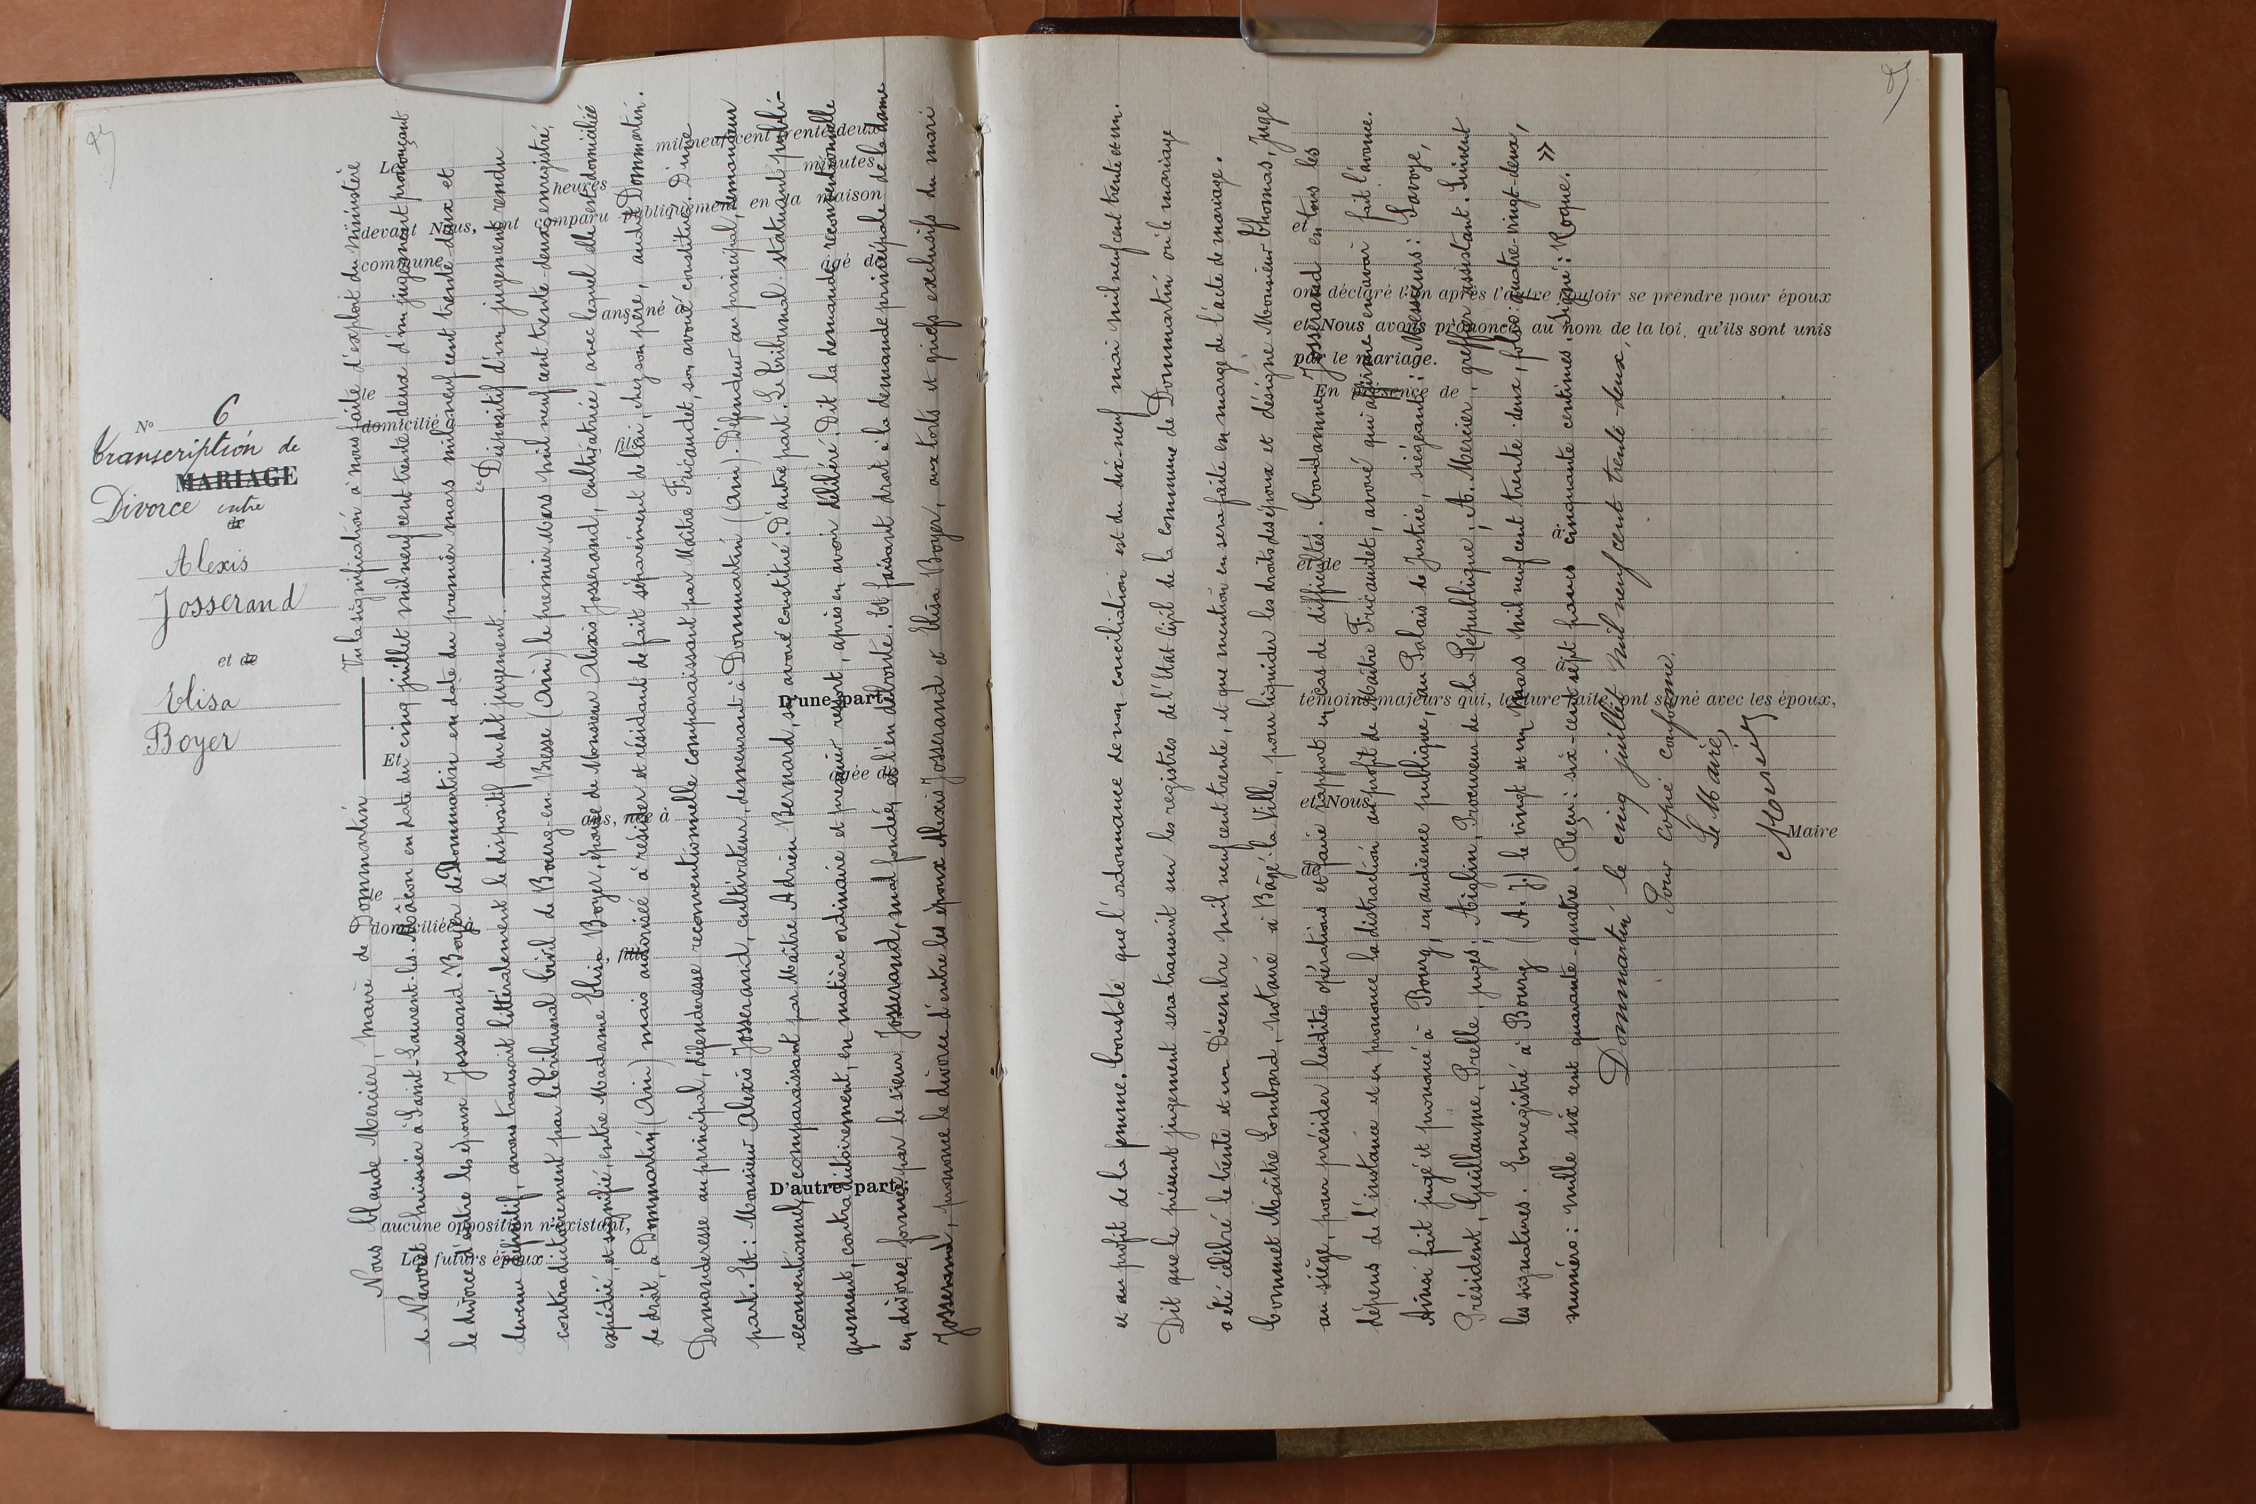 N° 6
Transcription de
MARIAGE
Divorce entre
de
Alexis
Josserand
et de
Elisa
Boyer
Le mil neuf cent trente-deux
heures minutes
devant Nous, ont comparu publiquement en la maison
commune
âgé de
ans, né à
le
domicilié à
fils
D'une part
Et
âgée de
ans, née à
le
domiciliée à
fille
D'autre part
aucune opposition n'existant,
Les futurs époux
Nous Claude Mercier, maire de Dommartin Vu la signification à nous faite d'exploit du ministère
de Nevoret huissier à Saint-Laurent-les-Mâcon en date du cinq juillet mil neuf cent trente-deux d'un jugement prononçant
le divorce d'entre les époux Josserand-Boyer de Dommartin en date du premier mars mil neuf cent trente-deux et
devenu définitif, avons transcrit littéralement le dispositif dudit jugement. "Dispositif d'un jugement rendu
contradictoirement par le Tribunal Civil de Bourg-en-Bresse (Ain) le premier Mars mil neuf cent trente-deux, enregistré,
expédié et signifié, entre Madame Elisa Boyer, épouse de Monsieur Alexis Josserand, cultivatrice, avec lequel elle est domiciliée
de droit, à Dommartin (Ain) mais autorisée à résider et résidant de fait séparément de lui, chez son père, audit Dommartin.
Demanderesse au principal, défenderesse reconventionnelle comparaissant par Maître Fricaudet, son avoué constitué. D'une
part. Et: Monsieur Alexis Josserand, cultivateur, demeurant à Dommartin (Ain). Défendeur au principal, demandeur
reconventionnel, comparaissant par Maître Adrien Bernard, son avoué constitué. D'autre part. Le Tribunal statuant publi-
quement, contradictoirement, en matière ordinaire et premier ressort, après en avoir délibéré. Dit la demande reconventionnelle
en divorce, formée par le sieur Josserand, mal fondée, et l'en déboute. Et faisant droit à la demande principale de la dame
Josserand, prononce le divorce d'entre les époux Alexis Josserand et Elisa Boyer, aux torts et griefs exclusifs du mari
et
ont déclaré l'un après l'autre vouloir se prendre pour époux
et Nous avons prononcé, au nom de la loi, qu'ils sont unis
par le mariage.
En présence de
et de
témoins majeurs qui, lecture faite, ont signé avec les époux,
et Nous
de
Maire
et au profit de la femme. Constate que l'ordonnance de non conciliation est du dix-neuf mai mil neuf cent trente et un.
Dit que le présent jugement sera transcrit sur les registres de l'état Civil de la commune de Dommartin où le mariage
a été célébré le trente et un Décembre mil neuf cent trente, et que mention en sera faite en marge de l'acte de mariage.
Commet Maître Lombard, notaire à Bâgé-la-Ville, pour liquider les droits des époux et désigne Monsieur Thomas, Juge
au siège, pour présider lesdites opérations et faire rapport en cas de difficultés. Condamne Josserand en tous les
dépens de l'instance et en prononce la distraction au profit de Maître Fricaudet, avoué qui affirme en avoir fait l'avance.
Ainsi fait jugé et prononcé à Bourg, en audience publique, au Palais de Justice, siégeant: Messieurs: Savoye,
Président, Guillaume, Prelle, juges, Aiglin, Procureur de la République, A. Mercier, greffier assistant. Suivent
les signatures. Enregistré à Bourg (A. J.) le vingt et un Mars mil neuf cent trente-deux, folio: quatre-vingt-deux,
numéro: mille six cent quarante-quatre. Reçu: six-cent sept francs cinquante centimes. Signé: Roque. »
Dommartin le cinq juillet mil neuf cent trente-deux,
Pour copie conforme,
Le Maire,
Mercier